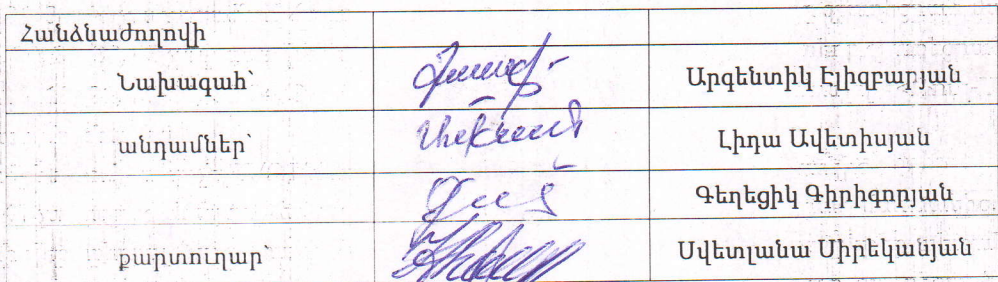 Հանձնաժողովի
Նախագահ՝ Արգենտիկ Էլիզբարյան
անդամներ՝ Լիդա Ավետիսյան
Գեղեցիկ Գիրիգորյան
քարտուղար՝ Սվետլանա Սիրեկանյան